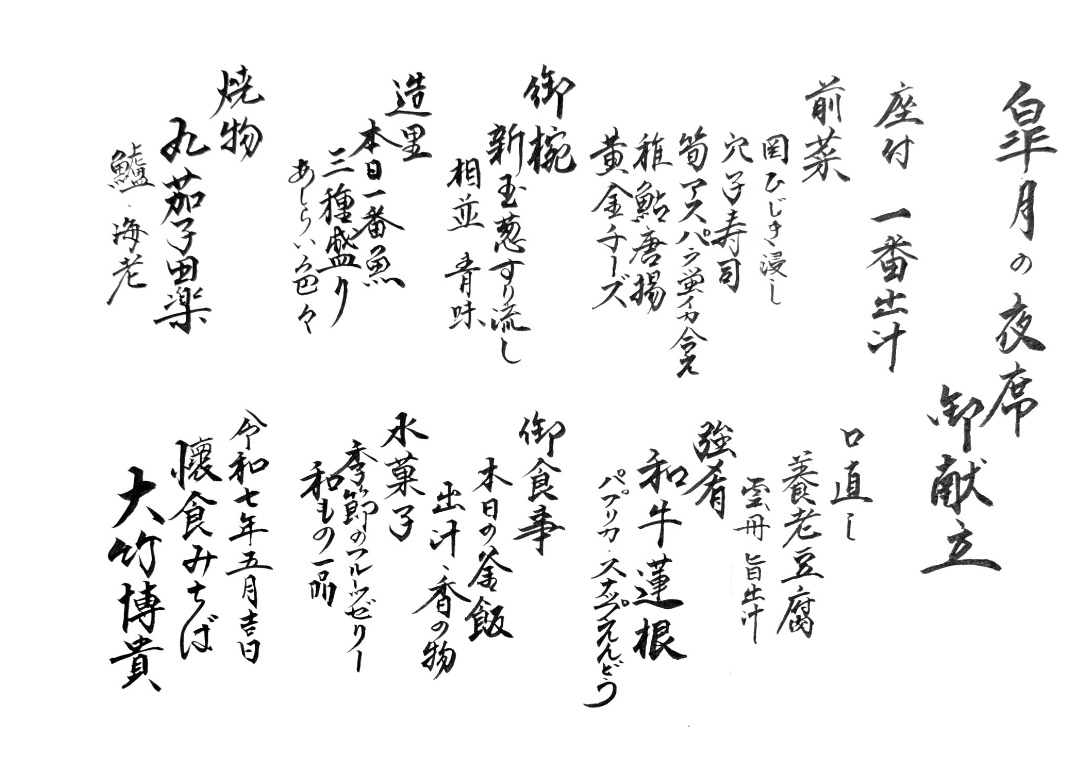 皐月の夜席
御献立
座付 一番出汁
前菜
岡ひじき浸し
穴子寿司
筍アスパラ蛍イカ合え
稚鮎唐揚
黄金チーズ
御椀
新玉葱すり流し
相並 青味
造里
本日一番魚
三種盛り
あしらい色々
焼物
丸茄子田楽
鱸、海老
口直し
養老豆腐
雲丹 旨出汁
強肴
和牛蓮根
パプリカ・スナップえんどう
御食事
本日の釜飯
出汁、香の物
水菓子
季節のフルーツゼリー
和もの一品
令和七年五月吉日
懐食みちば
大竹博貴